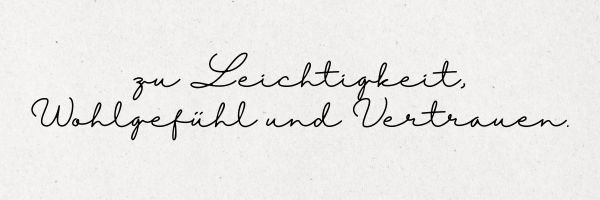 zu Leichtigkeit,
Wohlgefühl und Vertrauen.